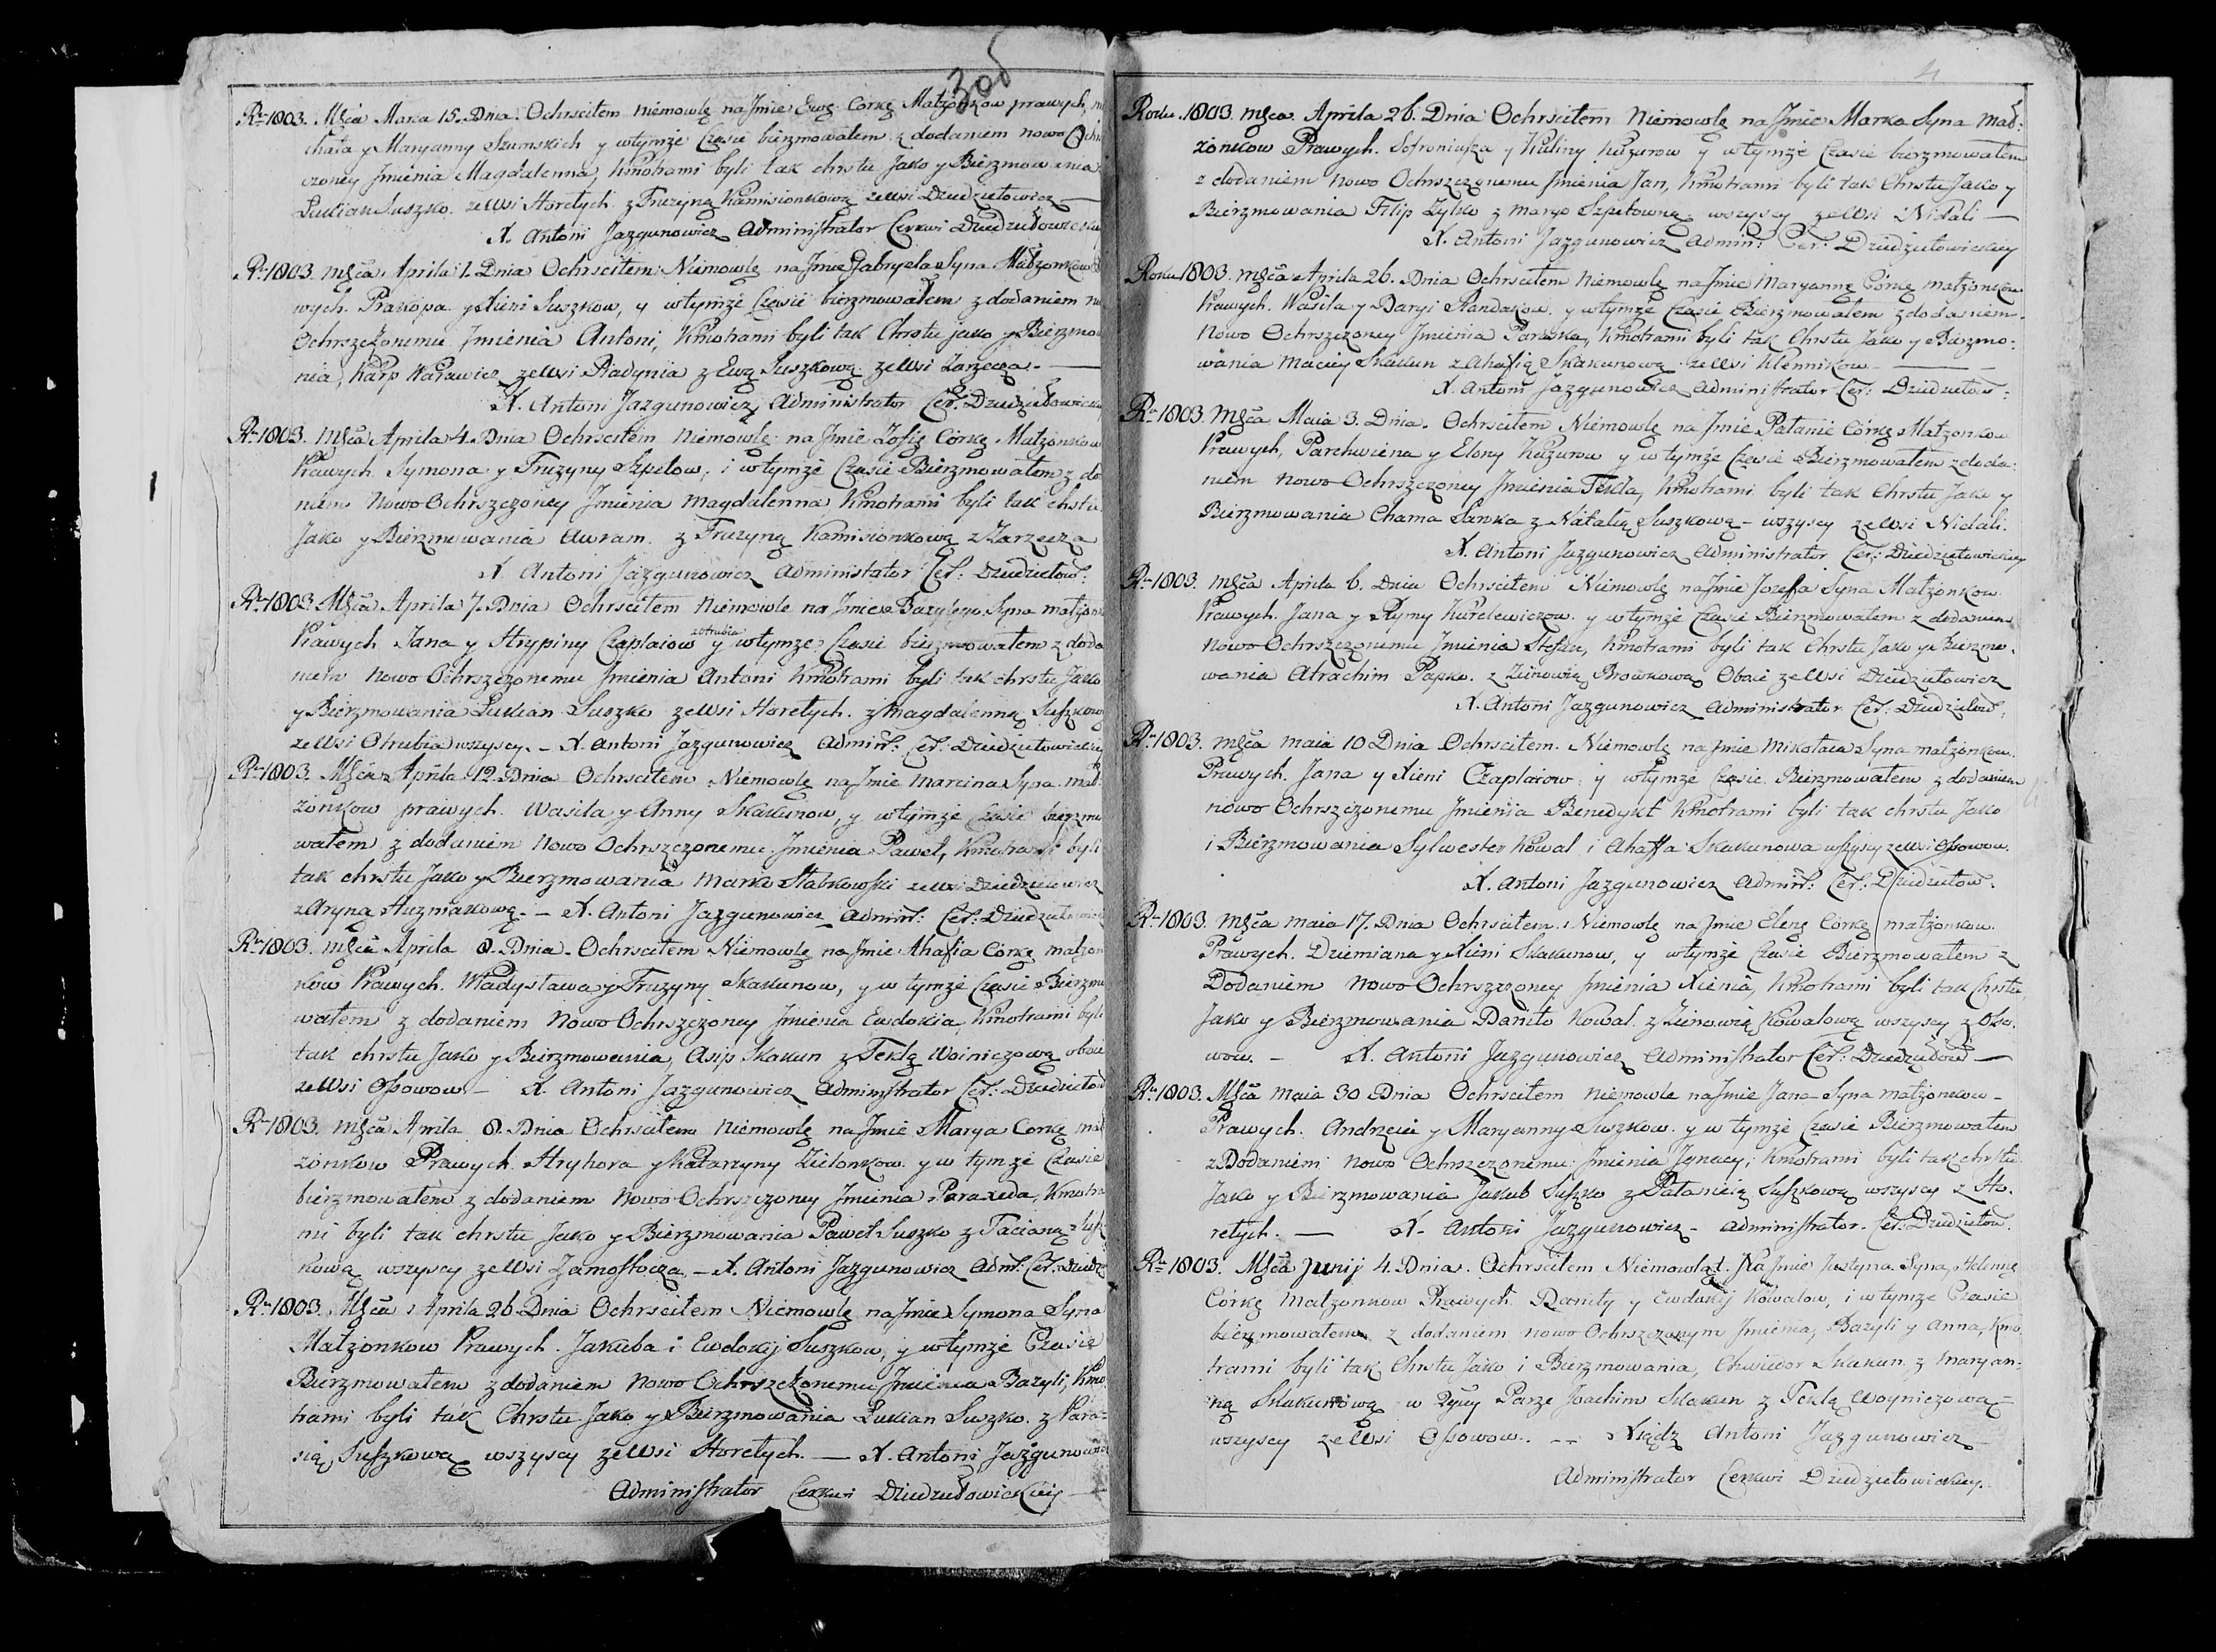 30б
Ru 1803. Mśca Marca 15. Dnia. Ochrsciłem niemowlę na Jmie Ewę Córkę Małżonkow prawych,
chała y Maryanny Szumskich y wtymże Czasie bierzmowałem z dodaniem nowo Ochrsz
czoney Jmienia Magdalenna, Kmotrami byli tak chrstu Jako y Bierzmowania
Łukian Suszko zewsi Horełych z Fruzyną Kamisionkową zewsi Dziedziełowicz —
X. Antoni Jazgunowicz Administrator Cerkwi Dziedziłowickiey
Ru 1803. Mśca Aprila 1. Dnia Ochrsciłem Niemowlę na Jmie Gabryela Syna Małżonkow
wych. Prakopa y Xieni Suszkow, y wtymże Czasie bierzmowałem z dodaniem no
Ochrszczonemu Jmienia Antoni, Kmotrami byli tak Chrstu jako y Bierzmowa
nia, Karp zewsi Pladynia z Ewą Suszkową zewsi Zarzecza. —
X. Antoni Jazgunowicz Administrator Cer: Dziedziłowickiey
Ru 1803. Mśca Aprila 4. Dnia Ochrsciłem niemowlę na Jmie Zofię Córkę Małżonkow
Prawych Symona y Fruzyny Szpełow, i wtymże Czasie Bierzmowałem z do
niem Nowo Ochrszczoney Jmienia Magdalenna, Kmotrami byli tak chrstu
Jako y Bierzmowania Awram z Fruzyną Kamisionkową z Zarzecza
X Antoni Jazgunowicz Administator Cer: Dziedziełow:
Ru 1803 Mśca Aprila 7. Dnia Ochrsciłem niemowle na Jmie Bazylego Syna małżon
Prawych Jana y Hrypiny Czaplaiow zOtrubia y wtymże Czasie bierzmowałem z doda
niem nowo Ochrszczonemu Jmienia Antoni Kmotrami byli tak chrstu Jako
y Bierzmowania Łukian Suszko zewsi Horełych. z Magdalenną Suszkową
zewsi Otrubia wszyscy. – X. Antoni Jazgunowicz Admin: Cer: Dziedziełowickiey
Ru 1803. Mśca Aprila 12. Dnia Ochrsciłem Niemowlę na Jmie Marcina Syna mał
żonkow prawych. Wasila y Anny Skakunow, y wtymże Czasie bierzmo
wałem z dodaniem Nowo Ochrszczonemu Jmienia Paweł, Kmotrami byli
tak chrstu Jako y Bierzmowania Marko Słabkowski zewsi Dziedziełowicz
z Aryną Huzniakową. – X. Antoni Jazgunowicz Admin: Cer: Dziedziełowic
Ru 1803. Mśca Aprila 8. Dnia. Ochrsciłem Niemowlę na Jmie Ahafia Córkę małżon
kow Prawych. Władysława y Fruzyny Skakunow, y w tymże Czasie Bierzmo
wałem z dodaniem Nowo Ochrszczoney Jmienia Ewdokia, Kmotrami byli
tak chrstu Jako y Bierzmowania, Asip Skakun z Teklą Woiniczową oboie
zewsi Ossowow – X. Antoni Jazgunowicz Administrator Cer: Dziedziełow
Ru 1803. Mśca Aprila 8. Dnia Ochrsciłem Niemowlę na Jmie Marya Corkę mał
żonkow Prawych. Hryhora y Katarzyny Zielonkow. y w tymże Czasie
bierzmowałem z dodaniem Nowo Ochrszczoney Jmienia Paraxeda, Kmotra
mi byli tak chrstu Jako y Bierzmowania Paweł Suszko z Tacianą
kową wszyscy zewsi Zamostocza – X. Antoni Jazgunowicz Adm: Cer: Dziedz
Ru 1803. Mśca Aprila 26 Dnia Ochrsciłem Niemowlę na Jmie Symona Syna
Małżonkow Prawych. Jakuba i Ewdokij Suszkow, y wtymże Czasie
Bierzmowałem z dodaniem Nowo Ochrszczonemu Jmienia Bazyli, Kmo
trami byli tak Chrstu Jako y Bierzmowania Łukian Suszko. z Para=
sią Suszkową wszyscy zewsi Horełych. — X. Antoni Jazgunowicz
Administrator Cerkwi Dziedziłowickiey
4
Roku 1803. Mśca Aprila 26. Dnia Ochrsciłem Niemowlę na Jmie Marka Syna Mał:
żonkow Prawych. Sofroniusza y Kuliny Kuzurow y wtymże Czasie bierzmowałem
z dodaniem Nowo Ochrszczonemu Jmienia Jan, Kmotrami byli tak Chrstu Jako y
Bierzmowania Filip Zylko z Maryą Szpełowną wszyscy zewsi Nidali —
X. Antoni Jazgunowicz Admin: Cer: Dziedziełowickiey
Roku 1803. Mśca Aprila 26. Dnia Ochrsciłem Niemowlę na Jmie Maryannę Córkę małżonkow
Prawych. Wasila y Daryi Randakow. y wtymże Czasie Bierzmowałem z dodaniem
Nowo Ochrszczoney Jmienia Paraska, Kmotrami byli tak Chrstu Jako y Bierzmo:
wania Maciey Skakun z Ahafią Skakunową zewsi Klennikow. —
X. Antoni Jazgunowicz Administrator Cer: Dziedziełow:
Ru 1803. Mśca Maia 3. Dnia. Ochrsciłem Niemowlę na Jmie Pałanie Córkę Małżonkow
Prawych, Parchwiena y Elony Kuzurow y w tymże Czasie Bierzmowałem z doda:
niem Nowo Ochrszczoney Jmienia Tekla, Kmotrami byli tak Chrstu Jako y
Bierzmowania Chama Sanka z Natalią Suszkową – wszyscy zewsi Nidali.
X. Antoni Jazgunowicz Administrator Cer: Dziedziełowickiey
Ru 1803. Mśca Aprila 6. Dnia Ochrsciłem Niemowlę na Jmie Jozefa Syna Małżonkow
Prawych. Jana y Ryny Kurelewiczow. y wtymże Czasie Bierzmowałem z dodaniem
Nowo Ochrszczonemu Jmienia Stefan, Kmotrami byli tak Chrstu Jako y Bierzmo.
wania Atrachim Papko. z Zinowią Browkową Oboie zewsi Dziedziełowicz
X. Antoni Jazgunowicz Administrator Cer: Dziedziełow:
Ru 1803. Mśca Maia 10 Dnia Ochrsciłem. Niemowlę na Jmie Mikołaia Syna małżonkow.
Prawych. Jana y Xieni Czaplaiow y wtymże Czasie Bierzmowałem z dodaniem
nowo Ochrszczonemu Jmienia Benedykt Kmotrami byli tak chrstu Jako
i Bierzmowania Sylwester Kowal i Ahaffa Skakunowa wszyscy zewsi Ossowow.
X. Antoni Jazgunowicz Admin: Cer: Dziedziełow.
Ru 1803. Mśca Maia 17. Dnia Ochrsciłem Niemowlę na Jmie Elenę Córkę małżonkow.
Prawych. Dziemiana y Xieni Skakunow, y wtymże Czasie Bierzmowałem z
Dodaniem Nowo Ochrszczoney Jmienia Xienia, Kmotrami byli tak Chrstu
Jako y Bierzmowania Daniło Kowal z Zinowią Kowalową wszyscy z Oso.
wow. – X. Antoni Jazgunowicz Administrator Cer: Dziedziłow —
Ru 1803. Mśca Maia 30 Dnia Ochrsciłem Niemowle na Jmie Jana Syna małżonkow –
Prawych. Andrzeia y Maryanny Suszkow. y w tymże Czasie Bierzmowałem
z Dodaniem Nowo Ochrszczonemu Jmienia Jgnacy; Kmotrami byli tak chrstu
Jako y Bierzmowania Jakub Suszko z Pałanieią Suszkową wszyscy z Ho.
rełych. — X. Antoni Jazgunowicz – Administrator. Cer: Dziedziełow.
Ru 1803. Mśca Junij 4. Dnia. Ochrsciłem Niemowląt. Na Jmie Justyna Syna, Helenę
Córkę Małżonkow Prawych Daniły y Ewdokij Kowalow, i wtymże Czasie
bierzmowałem z dodaniem nowo Ochrszczonym Jmienia, Bazyli y Anna, Kmo
trami byli tak Chrstu Jako i Bierzmowania, Chwiedor Skakun z Maryan=
ną Skakunową w 2giey Parze Joachim Skakun z Teklą Woyniczową
wszyscy zewsi Ossowow. – – Xiądz Antoni Jazgunowicz
Administrator Cerkwi Dziedziełowickiey.